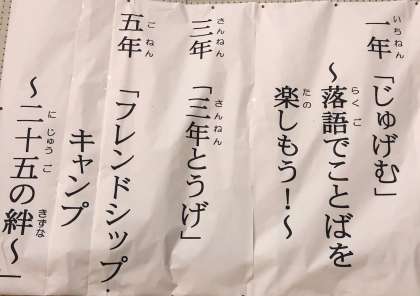 一年「じゅげむ」
～落語でことばを
楽しもう！～
三年「三年とうげ」
五年「フレンドシップ
キャンプ
～二十五の絆～」
いちねん
らくご
たの
さんねん
さんねん
ごねん
にじゅうご
きずな